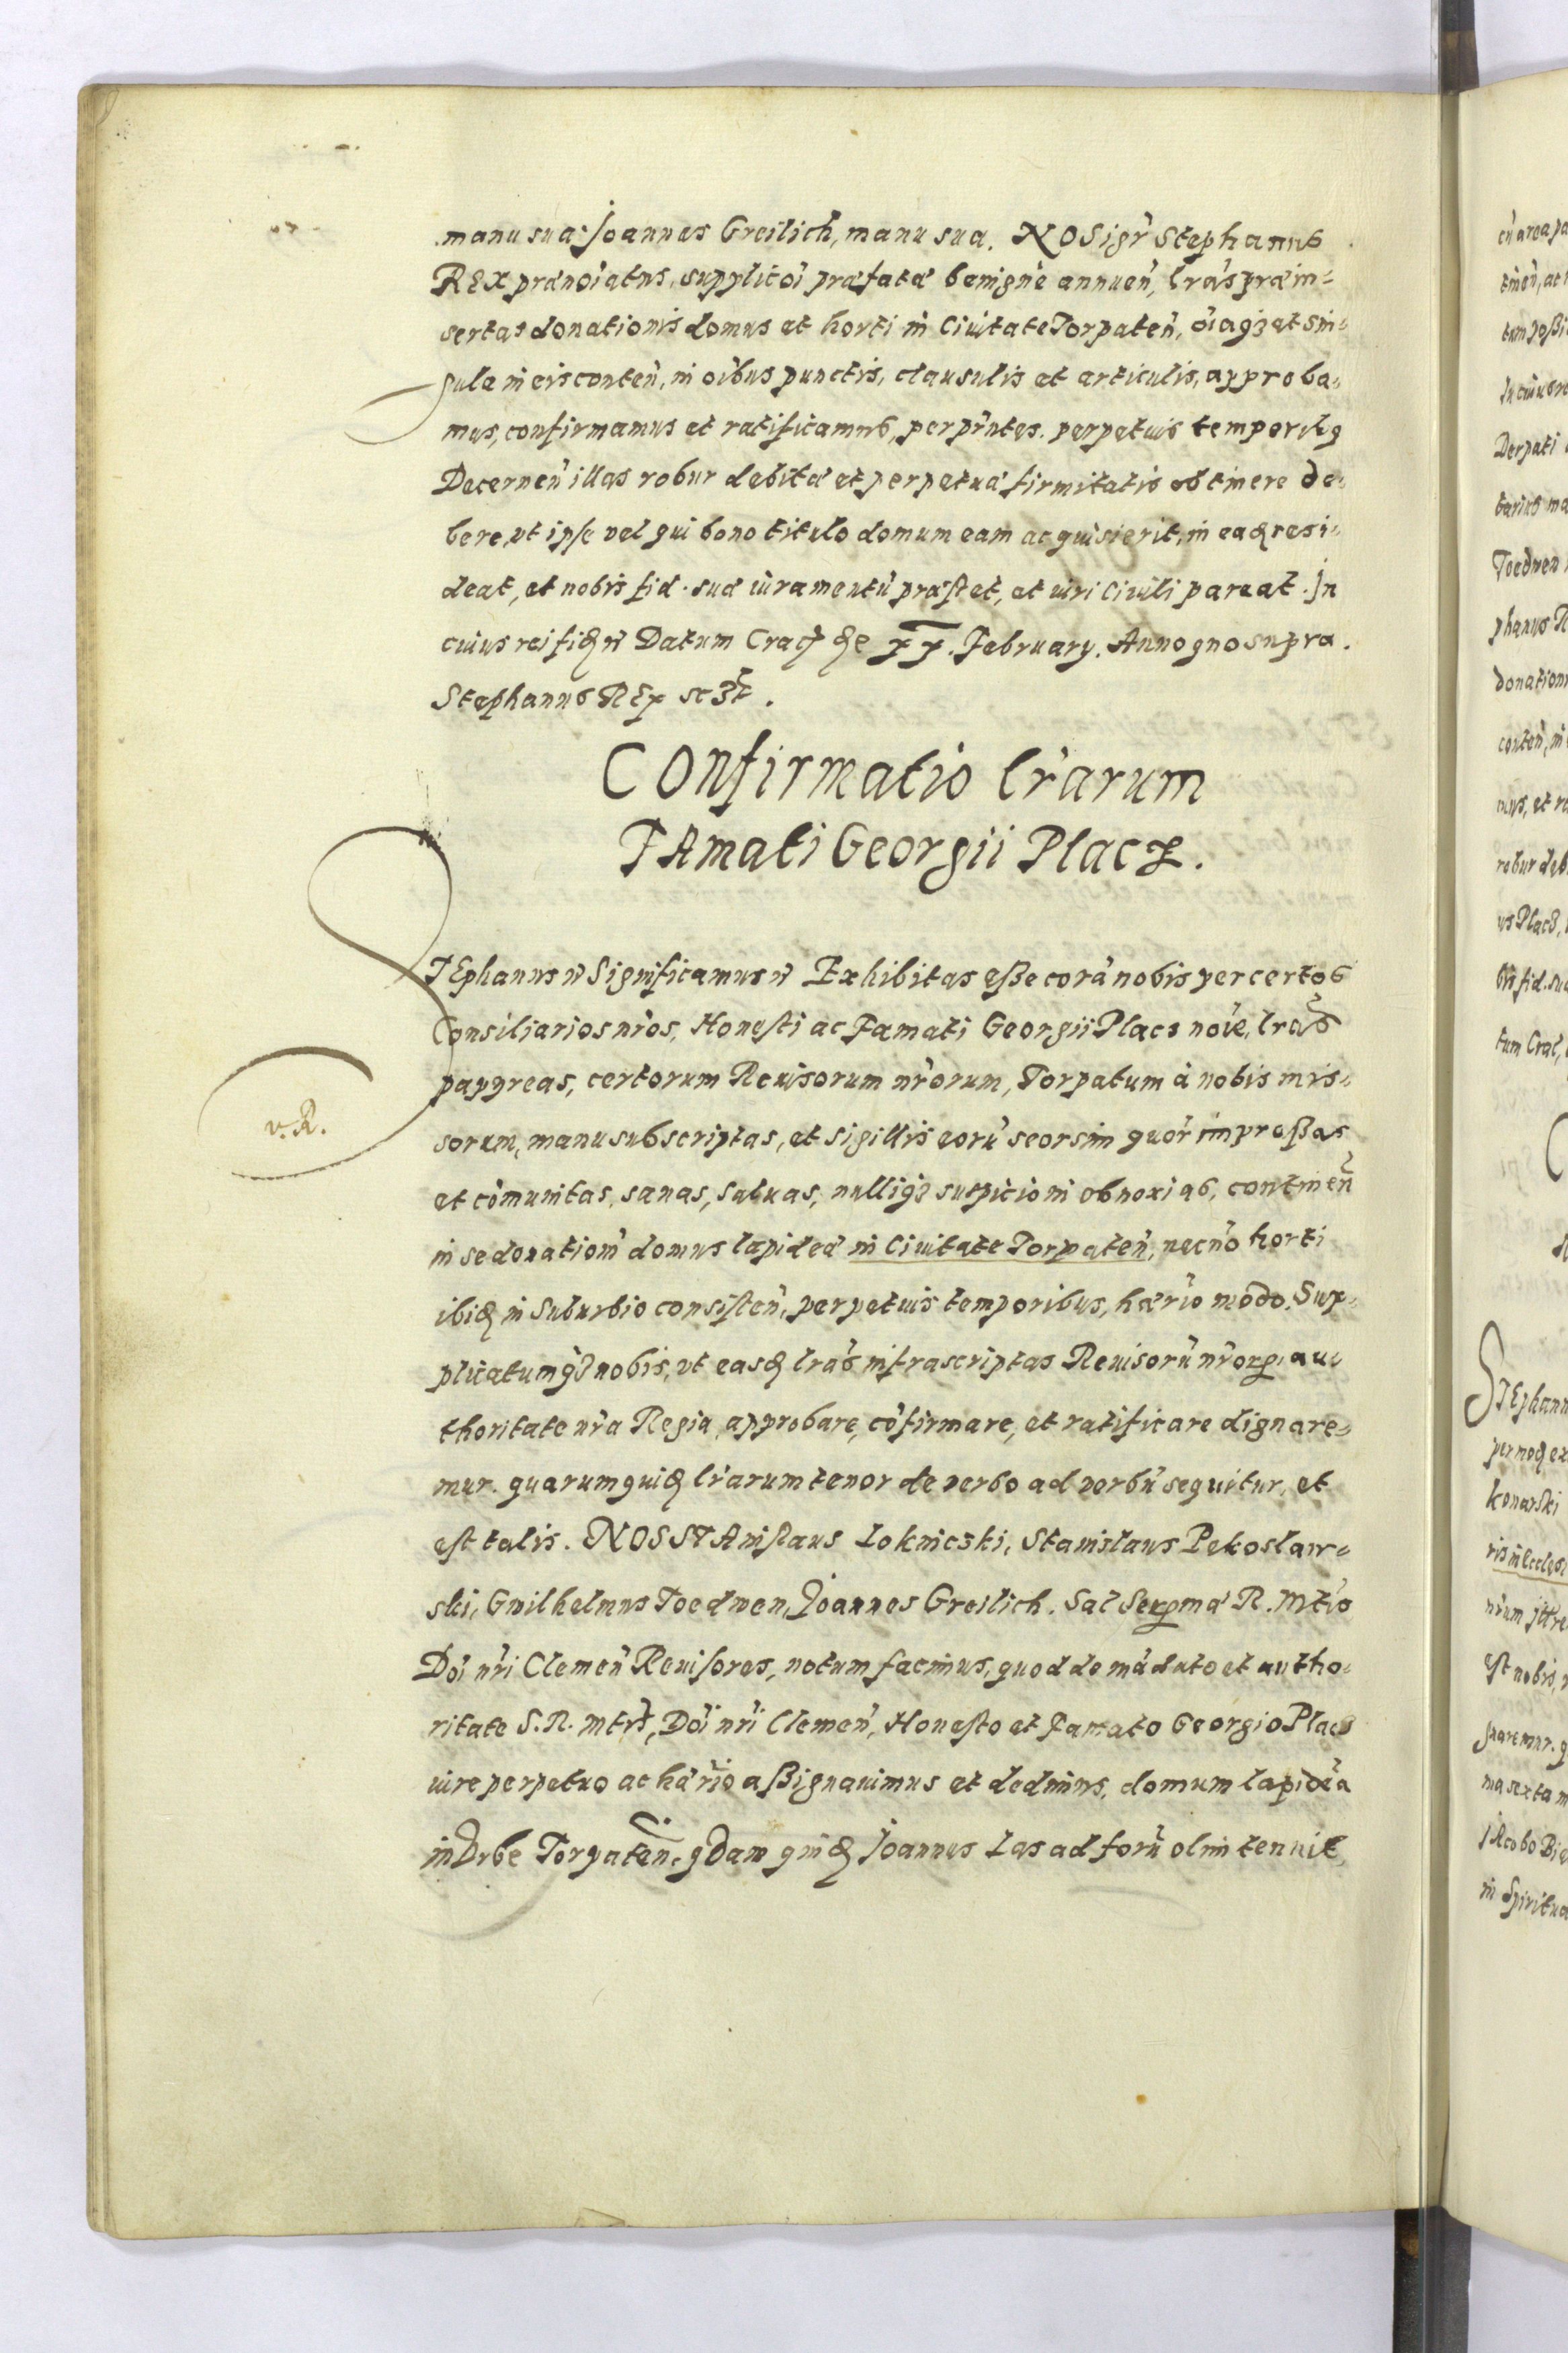 manu sua. Joannes Greilich, manu sua. NOS igr̃ Stephanus
REX prænoīatus, supplicōi præfatæ benignè annuen̄, lr̃as præin-
sertas donationis domus et horti in Ciuitate Torpaten̄, oīaqꝫ et sin-
gula in eis conten̄, in oībus punctis, clausulis et articulis, approba-
mus, confirmamus et ratificamus, per pr̃ntes. perpetuis temporibꝫ
Decernen̄ illas robur debitæ et perpetuæ firmitatis obtinere de-
bere, vt ipse vel qui bono titulo domum eam acquisierit, in eaꝺ resi-
deat, et nobis fid. suæ iuramentū præstet, et iuri Ciuili pareat. In
cuius rei fidꝫ Datum Crac̄ die XX. February. Anno quo supra.
Stephanus REX sc̄zt.
COnfirmatio lr̃arum
FAmati Georgii Placz.
STEphanus Significamus Exhibitas eße corā nobis per certos
Consiliarios nr̃os, Honesti ac Famati Georgii Placs noīe, lr̃as
papyreas, certorum Reuisorum nr̃orum, Torpatum à nobis mis-
sorum, manu subscriptas, et sigillis eorū seorsim quor̃ impreßas
et cōmunitas, sanas, saluas, nulliqꝫ suspicioni obnoxias, continen̄
in se donationē domus lapideæ in Ciuitate Torpaten̄, necnō horti
ibiꝺ in suburbio consisten̄, perpetuis temporibus, hær̃io modo. Sup-
plicatumqꝫ nobis, vt easꝺ lr̃as infrascriptas Reuisorū nr̃oꝝ, au-
thoritate nr̃a Regia, approbare, cōfirmare, et ratificare dignare-
mur. quarum quiꝺ lr̃arum tenor de verbo ad verbū sequitur, et
v. R.
est talis. NOS STAnislaus Loknicski, Stanislaus Pekoslaw-
ski, Guilhelmus Toedwen, Joannes Greilich. Sac̄ Sermæ R. Mtis
Dōi nr̃i Clemen̄ Reuisores, notum facimus, quod de mādato et autho-
ritate S. R. Mtis, Dōi nr̃i Clemen̄, Honesto et Famato Georgio Placs
iure perpetuo ac hær̃io aßignauimus et dedimus, domum lapideā
in Vrbe Torpaten̄, qdam Joannes Las ad forū olim tenuit,